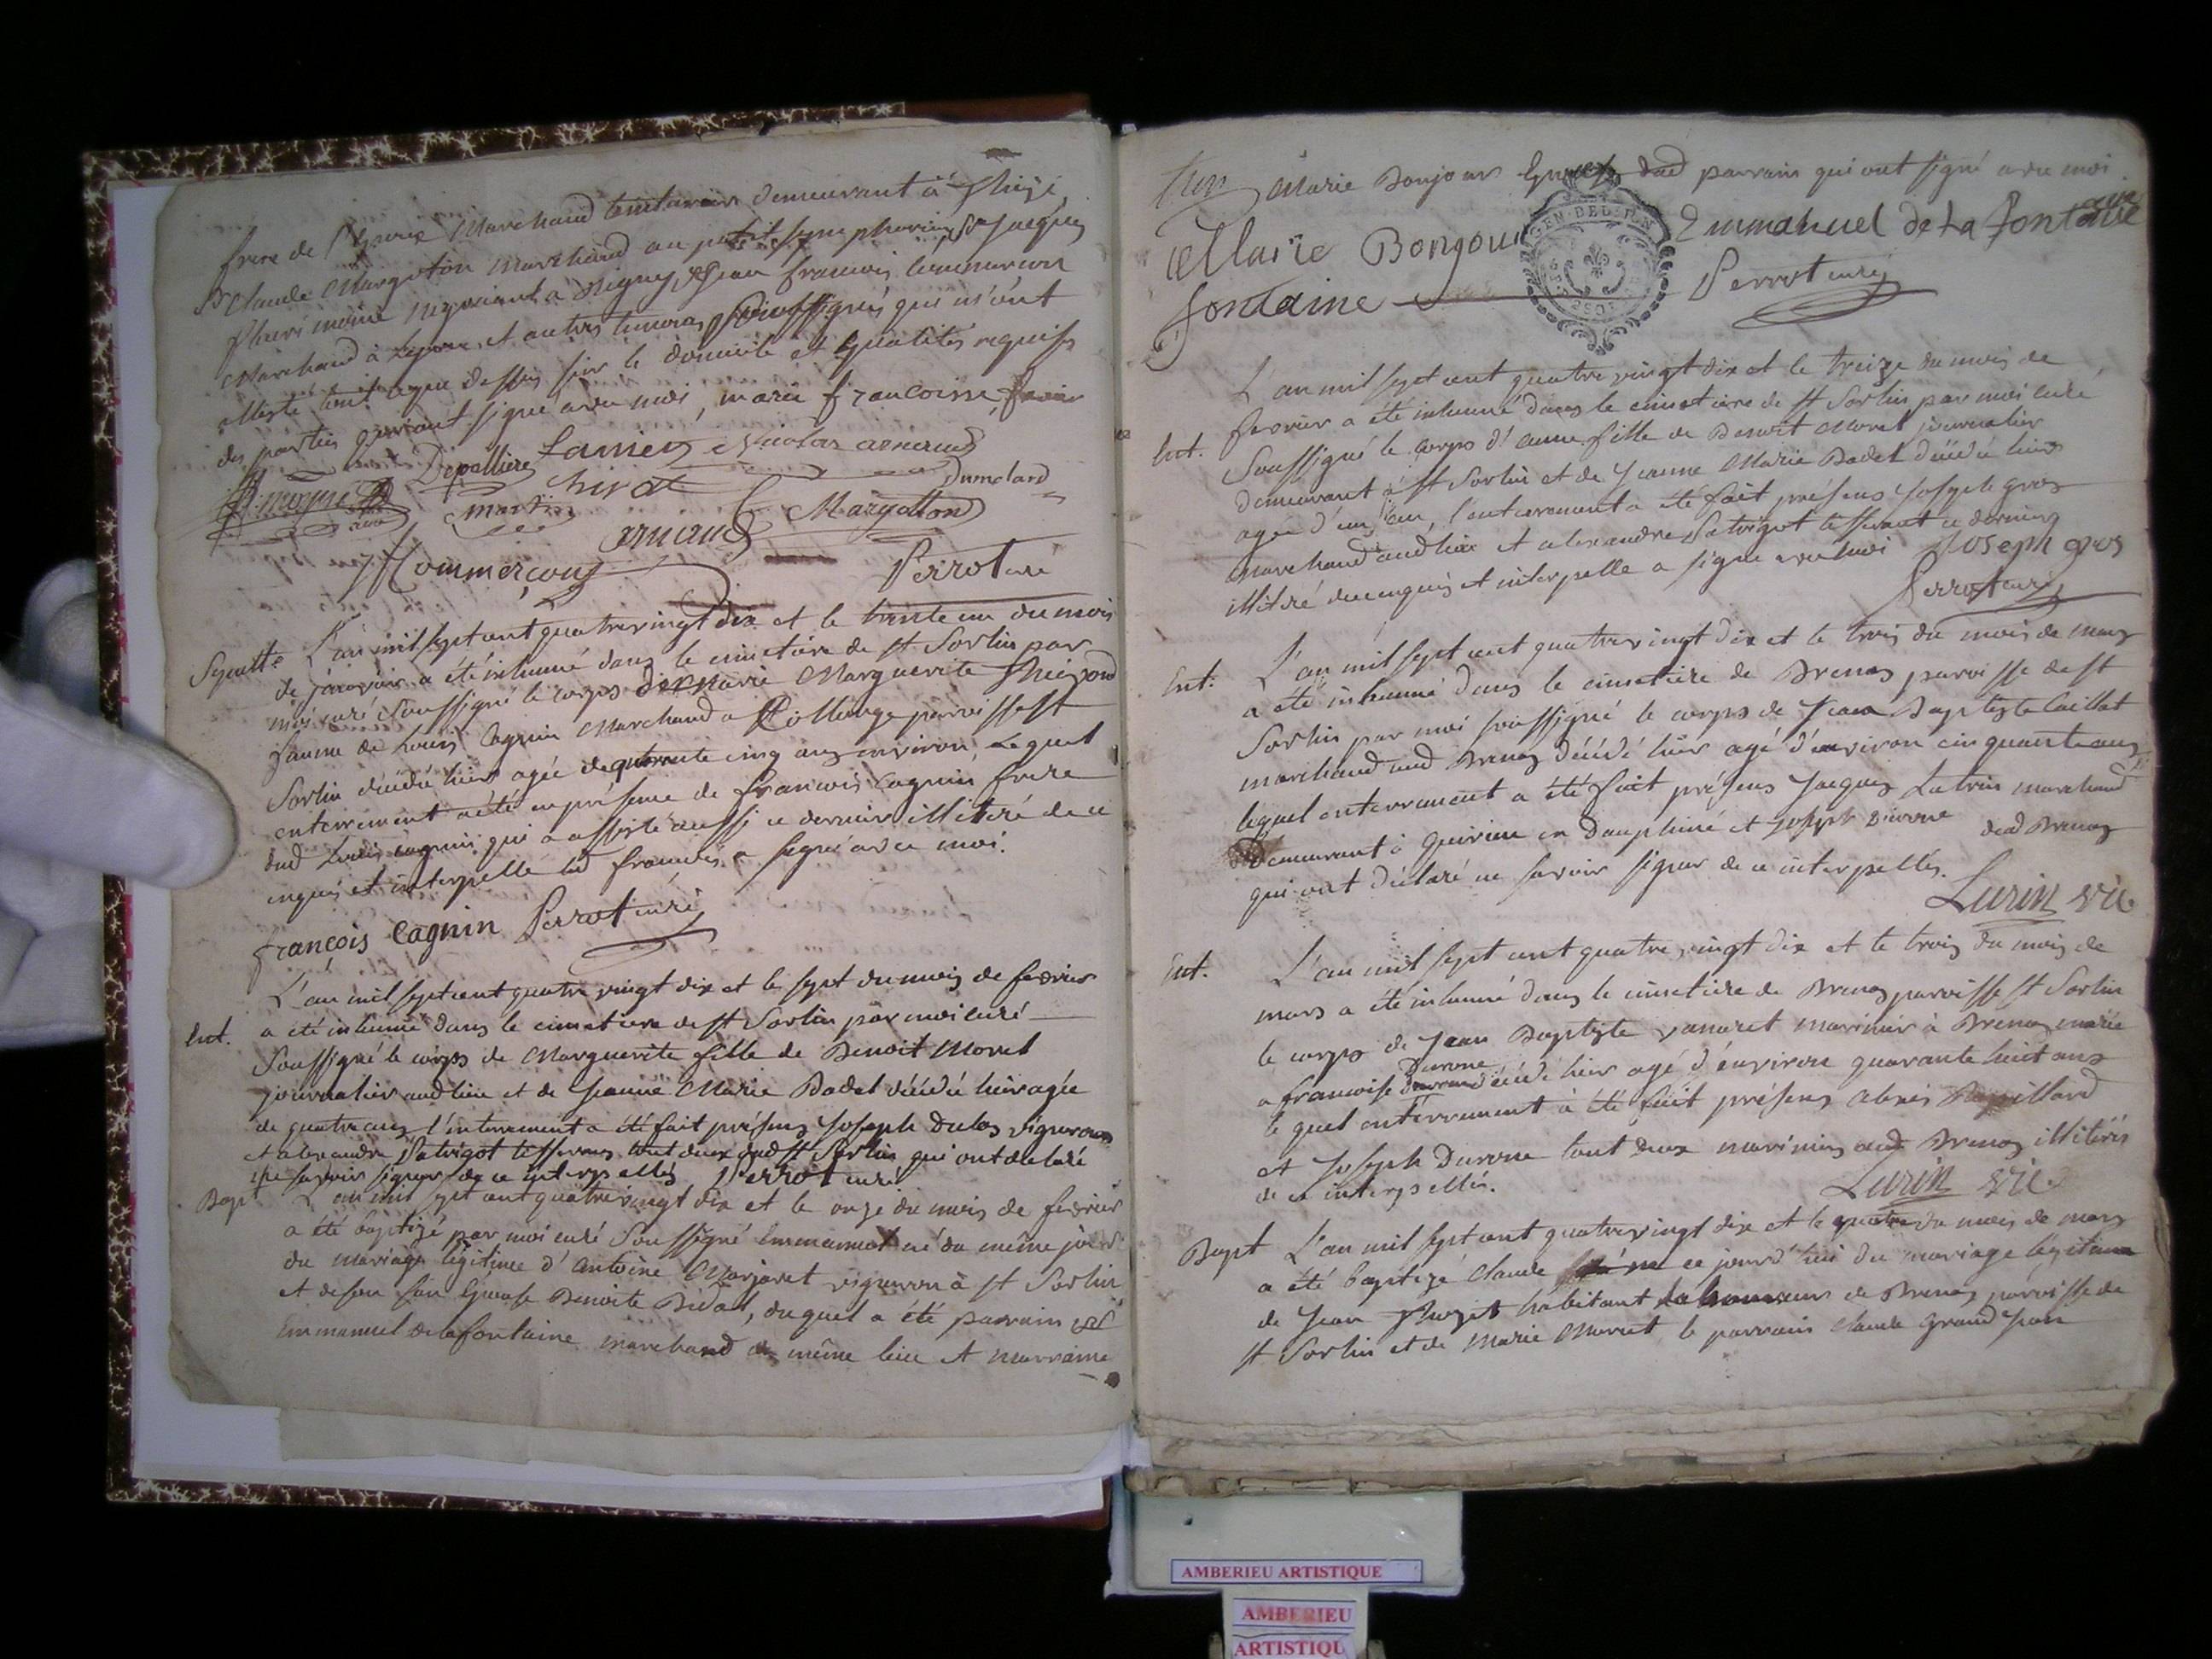 frere de l'Epoux Marchand demeurant à
Sr Claude Margoton marchand au petit Sr Jacques
negociant à françois Commerçon
Marchand à et autres temoins soussignés qui m'ont
attesté tout ce que dessus sur le domicile et qualités requises
des parties qui ont signé avec moi, marie françoise
Depallière Nicolas arnaud
Moyne chirat Dumolard
Martin arnaud Margotton
Commerçon Perrot curé
Sepult. L'an mil sept cent quatre vingt dix et le trente un du mois
de janvier a été inhumé dans le cimetière de st Sorlin par
moi curé Soussigné le corps de Marie Marguerite
femme de Louis Cagnin Marchand a Collonge paroisse st
Sorlin décédé hier agée de quarante cinq ans environ Lequel
enterrement a été en présence de francois cagnin frere
dud Louis cagnin qui a assisté aussi ce dernier illitéré de ce
enquis et interpellé led francois a signé avec moi.
françois Cagnin Perrot curé
L'an mil sept cent quatre vingt dix et le sept du mois de fevrier
Ent. a été inhumé dans le cimetiere de st Sorlin par moi curé
Soussigné le corps de Marguerite fille de Benoit Moret
journalier aud lieu et de Jeanne Marie Badet décédé hier agée
de quatre ans l'interrement a été fait présens Joseph Dulos vigneron
et alexandre Patrigot tisserand tout deux dud st Sorlin qui ont déclaré
ne savoir signer de ce interpellés Perrot curé
Bapt L'an mil sept cent quatre vingt dix et le onze du mois de fevrier
a été baptizé par moi curé Soussigné Emmanuel né du même jour
du mariage légitime d'Antoine Marjaret vigneron à st Sorlin
et de son Epouse Benoite Bidat, duquel a été parrain
Emmanuel de la fontaine marchand du même lieu et marraine
Marie Bonjour Epouse dud parrain qui ont signé avec moi
GEN. DE DIJON
Marie Bongour Emmanuel de La fontaine
fontaine Perrot curé
L'an mil sept cent quatre vingt dix et le treize du mois de
fevrier a été inhumé dans le cimetiere de st Sorlin par moi curé
Ent. Soussigné le corps d'anne fille de Benoit Moret journalier
demeurant à st Sorlin et de Jeanne Marie Badet décédé hier
agée d'un an, l'enterrement a été fait présens Joseph gros
marchand aud lieu et alexandre Patrigot tisserant ce dernier
illitéré de ce enquis et interpellé a signé avec moi Joseph gros
Perrot curé
L'an mil sept cent quatre vingt dix et le trois du mois de mars
Ent. a été inhumé dans le cimetiere de Brenaz paroisse de st
Sorlin par moi soussigné le corps de Jean Baptiste Caillat
marchand aud Brenaz décédé hier agé d'environ cinquante ans
lequel enterrement a été fait présens Jacques Latrin marchand
demeurant à Quirieu en Dauphiné et Joseph Durone dud Brenaz
qui ont déclaré ne savoir signer de ce interpellés.
Lurin vic
Ent. L'an mil sept cent quatre vingt dix et le trois du mois de
mars a été inhumé dans le cimetiere de Brenaz paroisse st Sorlin
le corps de Jean Baptiste vanaret marinier à Brenaz marié
Durone
a francoise décédé hier agé d'environ quarante huit ans
le quel enterrement à été fait présens alexis
et Joseph Durone tout deux mariniers aud Brenaz illitérés
de ce interpellés. Lurin vic
Bapt L'an mil sept cent quatre vingt dix et le quatre du mois de mars
a été baptizé Claude né ce jourd'hui du mariage légitime
de Jean habitant laboureur de Brenaz paroisse de
st Sorlin et de Marie Moret, le parrain Claude Grand Jean
AMBERIEU ARTISTIQUE
AMBERIEU
ARTISTIQU